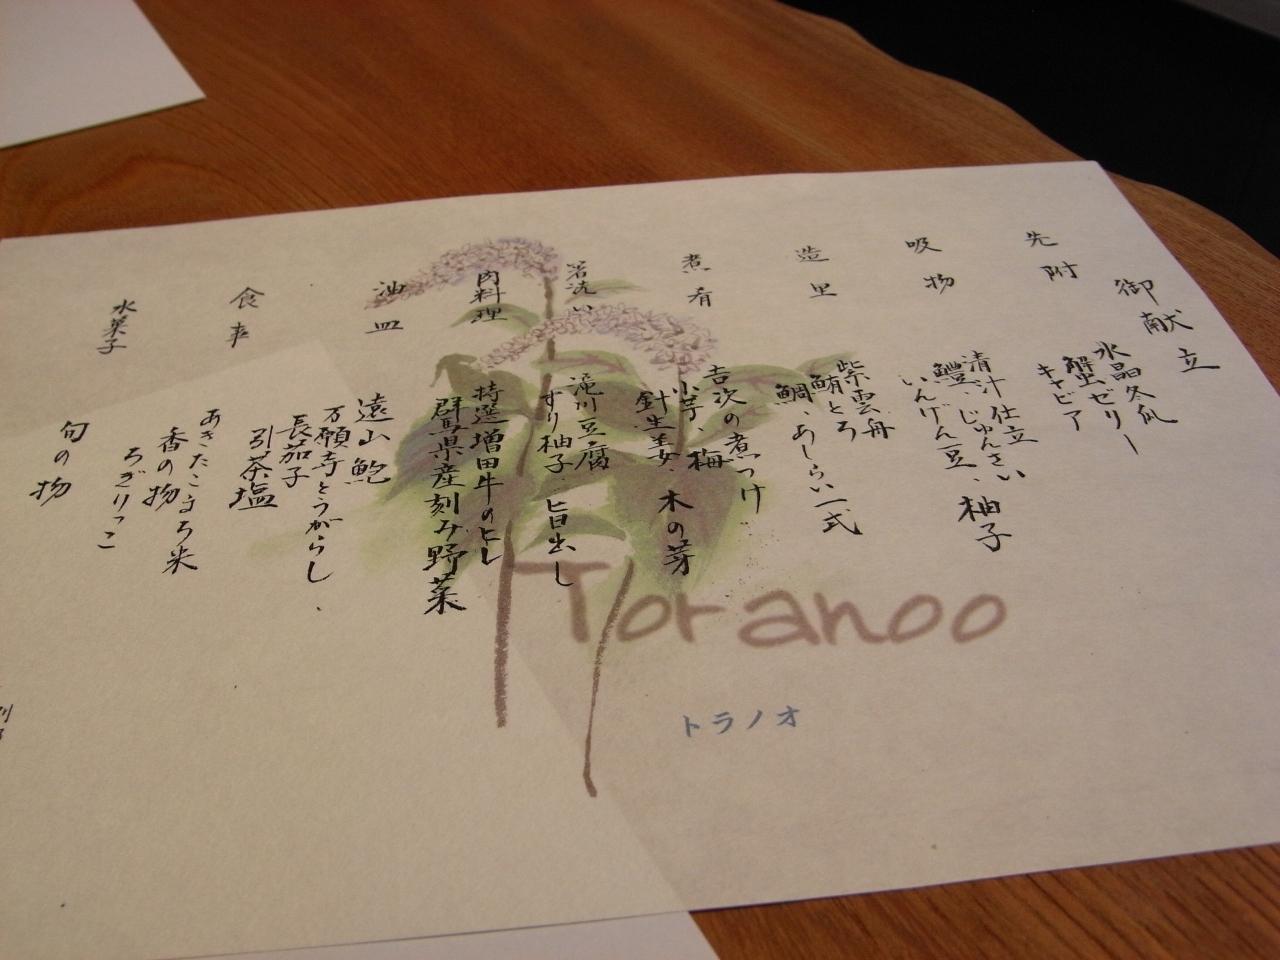 御献立
先附
水晶冬瓜
蟹ゼリー
キャビア
吸物
清汁仕立
鱧、じゅんさい
いんげん豆、柚子
造里
紫雲舟
鮪とろ
鯛、あしらい一式
煮肴
吉次の煮つけ
小芋、梅
針生姜、木の芽
箸洗い
滝川豆腐
すり柚子、旨出し
肉料理
特選増田牛のヒレ
群馬県産刻み野菜
油皿
遠山鮑
万願寺とうがらし、
長茄子
引茶塩
食事
あきたこまち米
香の物
水菓子
旬の物
Toranoo
トラノオ